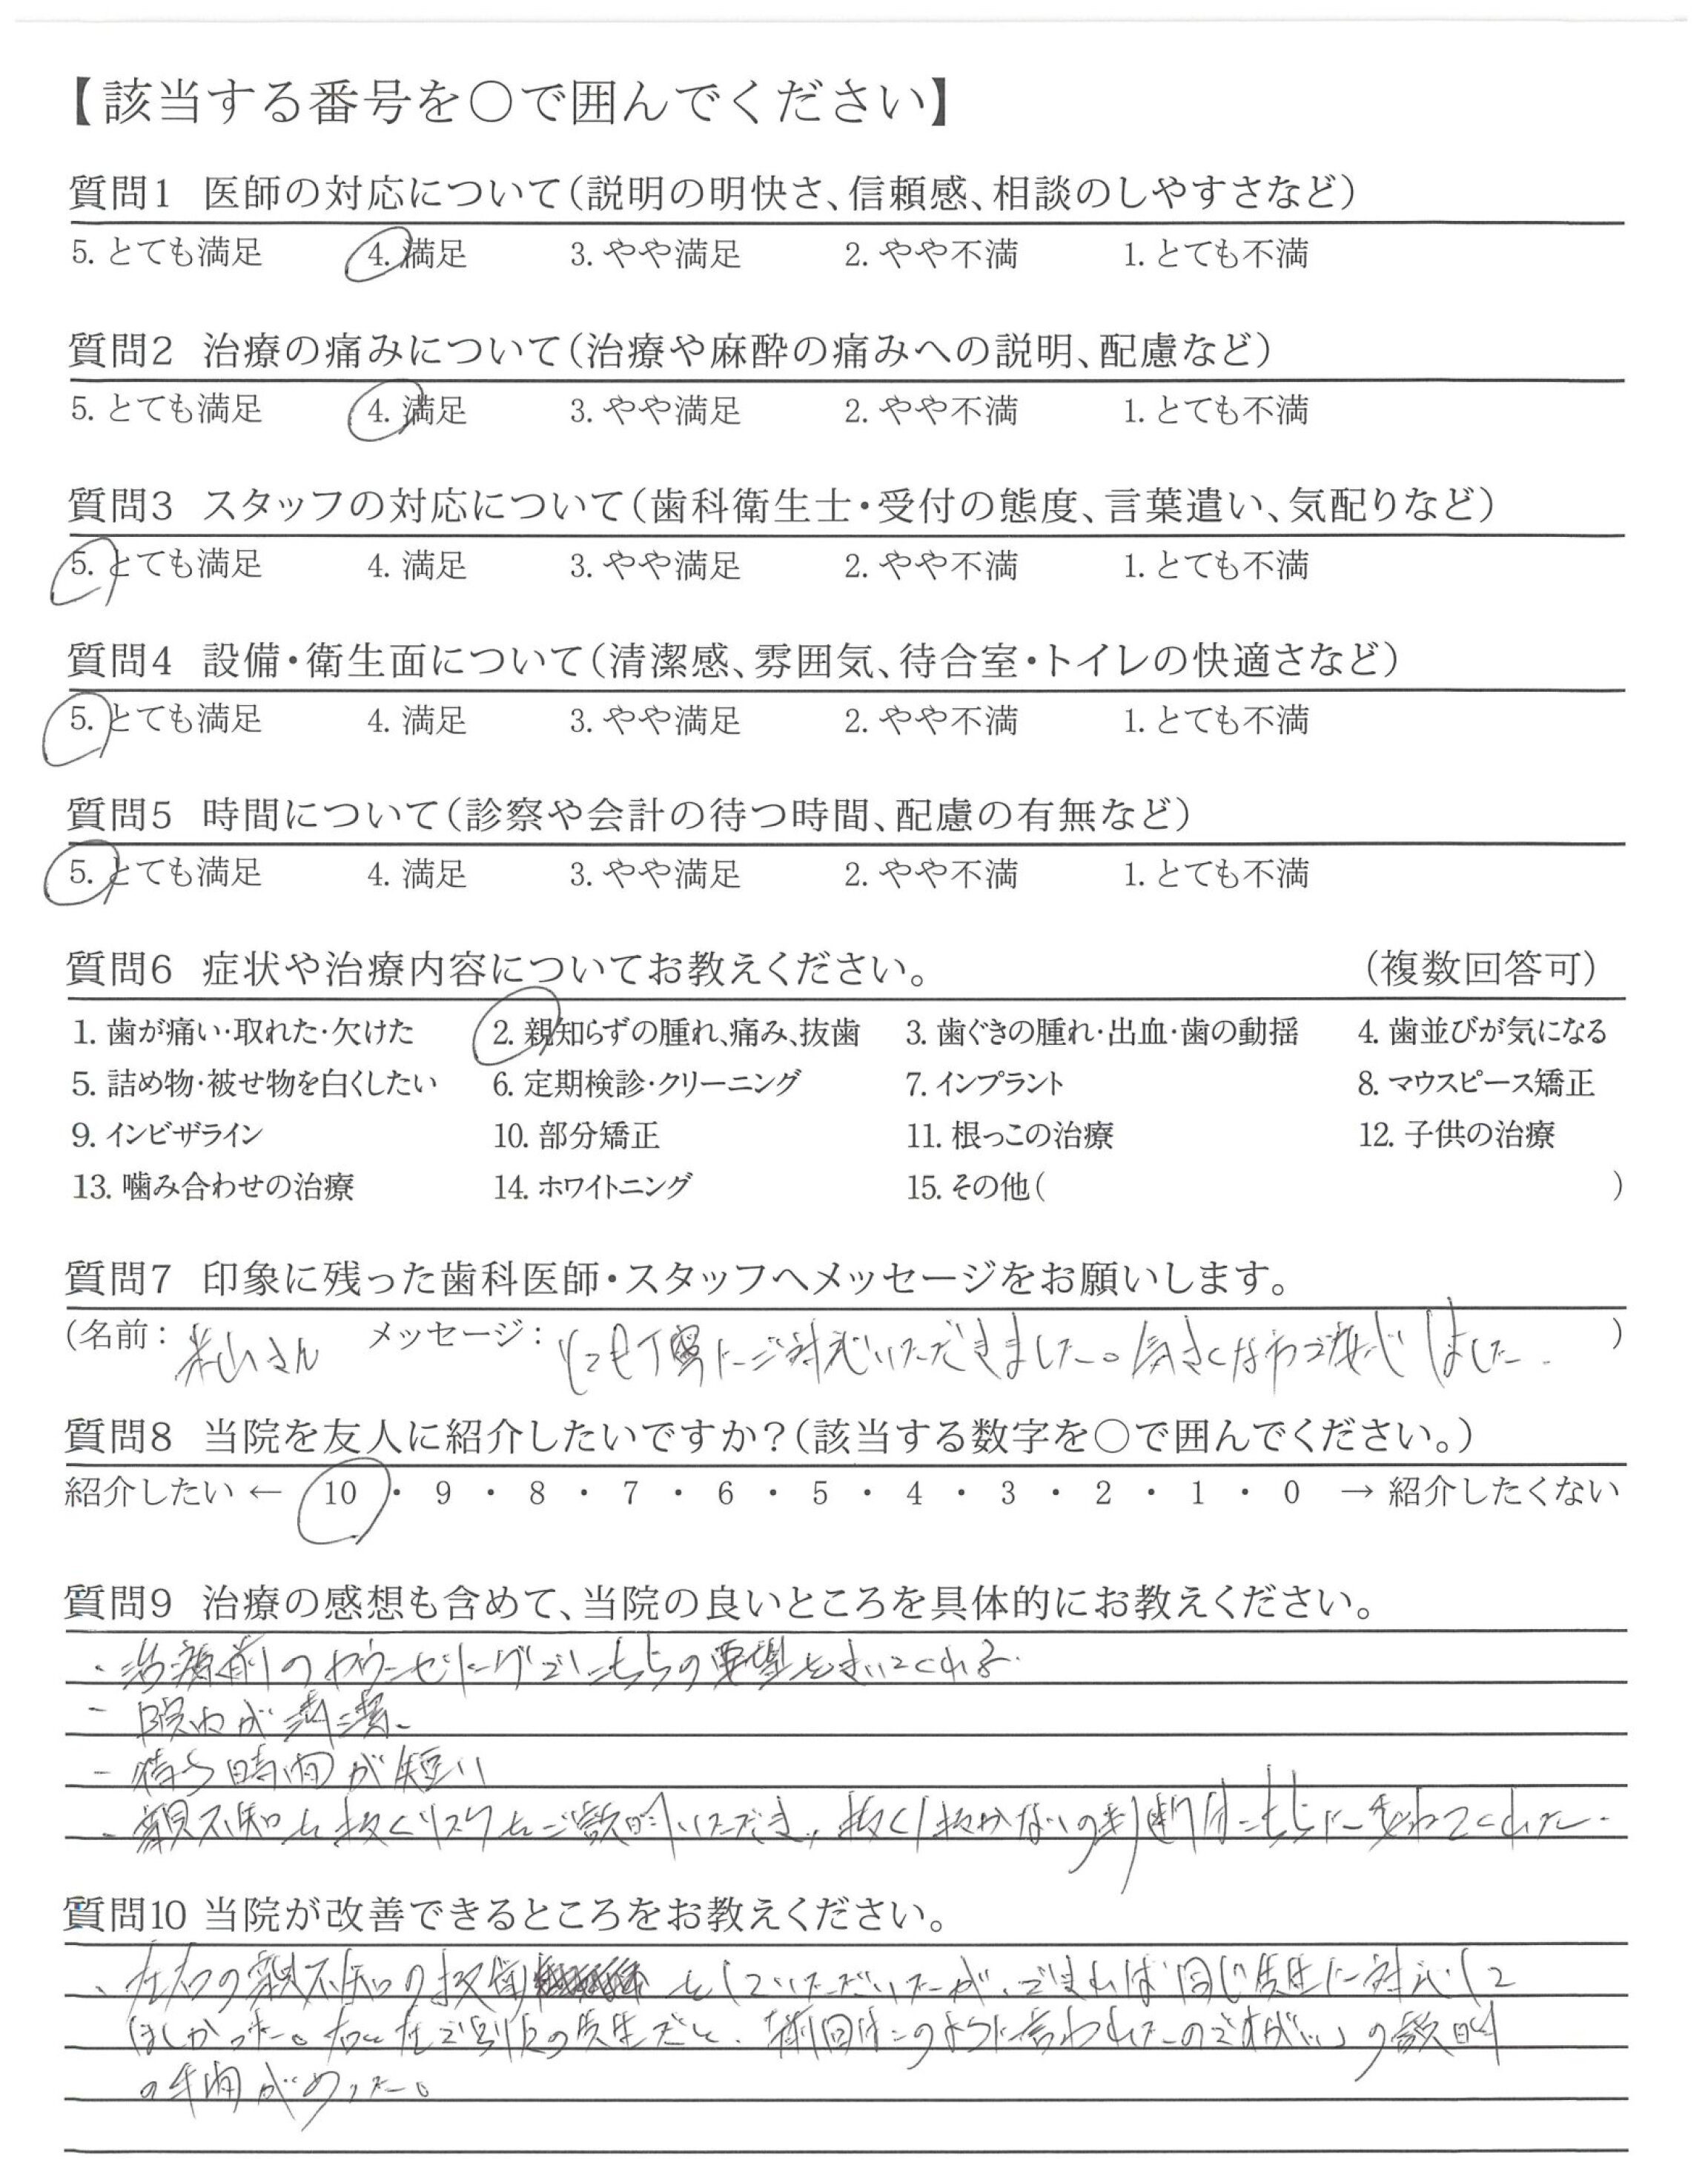 【該当する番号を〇で囲んでください】
質問1 医師の対応について(説明の明快さ、信頼感、相談のしやすさなど)
5. とても満足 4. 満足 3. やや満足 2. やや不満 1. とても不満
質問2 治療の痛みについて(治療や麻酔の痛みへの説明、配慮など)
5. とても満足 4. 満足 3. やや満足 2. やや不満 1. とても不満
質問3 スタッフの対応について(歯科衛生士・受付の態度、言葉遣い、気配りなど)
5. とても満足 4. 満足 3. やや満足 2. やや不満 1. とても不満
質問4 設備・衛生面について(清潔感、雰囲気、待合室・トイレの快適さなど)
5. とても満足 4. 満足 3. やや満足 2. やや不満 1. とても不満
質問5 時間について(診察や会計の待つ時間、配慮の有無など)
5. とても満足 4. 満足 3. やや満足 2. やや不満 1. とても不満
質問6 症状や治療内容についてお教えください。 (複数回答可)
1. 歯が痛い・取れた・欠けた 2. 親知らずの腫れ、痛み、抜歯 3. 歯ぐきの腫れ・出血・歯の動揺 4. 歯並びが気になる
5. 詰め物・被せ物を白くしたい 6. 定期検診・クリーニング 7. インプラント 8. マウスピース矯正
9. インビザライン 10. 部分矯正 11. 根っこの治療 12. 子供の治療
13. 噛み合わせの治療 14. ホワイトニング 15. その他( )
質問7 印象に残った歯科医師・スタッフへメッセージをお願いします。
(名前: 米山さん メッセージ: とても丁寧にご対応いただきました。気さくな方で安心しました. )
質問8 当院を友人に紹介したいですか?(該当する数字を〇で囲んでください。)
紹介したい ← 10 ・ 9 ・ 8 ・ 7 ・ 6 ・ 5 ・ 4 ・ 3 ・ 2 ・ 1 ・ 0 → 紹介したくない
質問9 治療の感想も含めて、当院の良いところを具体的にお教えください。
・治療前のカウンセリングでこちらの要望をきいてくれる.
- 院内が清潔.
- 待ち時間が短い
- 親不知を抜くリスクをご説明いただき、抜く/抜かないの判断はこちらに委ねてくれた.
質問10 当院が改善できるところをお教えください。
・左右の親不知の抜歯をしていただいたが、できれば同じ先生に対応して
ほしかった。右と左で別の先生だと、「前回はこのように言われたのですが…」の説明
の手間があった。